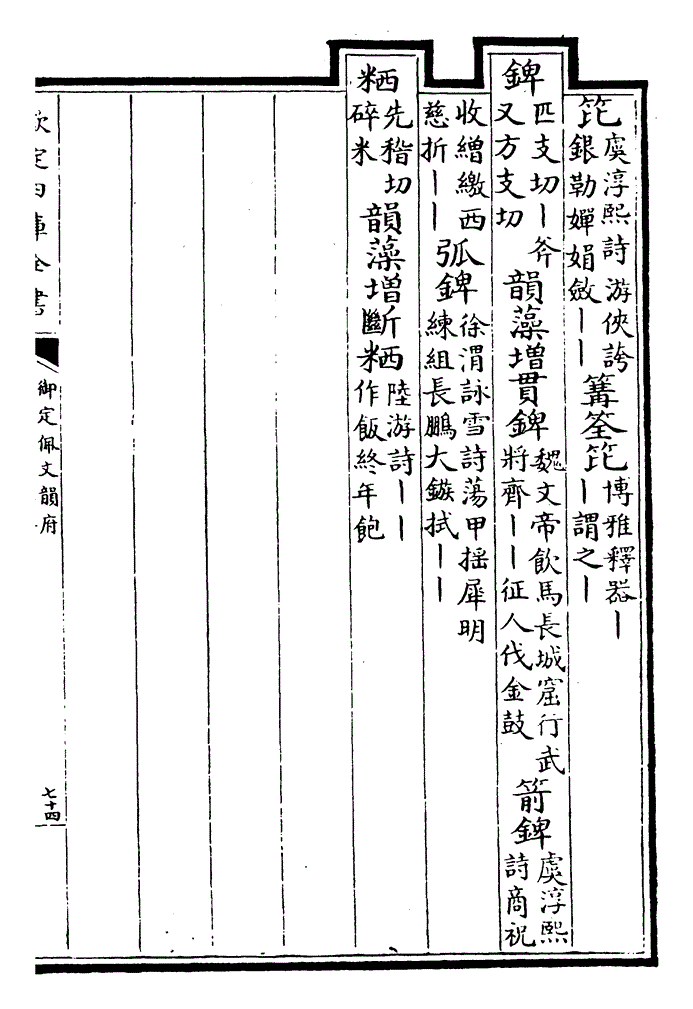 笓虞淳熙詩游俠誇銀勒嬋娟斂丨丨篝筌笓博雅釋器丨丨謂之丨
錍匹支切丨斧又方支切韻藻增貫錍魏文帝飲馬長城窟行武將齊丨丨征人伐金鼓箭錍虞淳熙詩商祝
收繒繳西慈折丨丨弧錍徐渭詠雪詩蕩甲揺犀明練組長鵬大鏃拭丨丨
粞先稽切碎米韻藻增斷粞陸游詩丨丨作飯終年飽
欽定四庫全書
御定佩文韻府
七十四